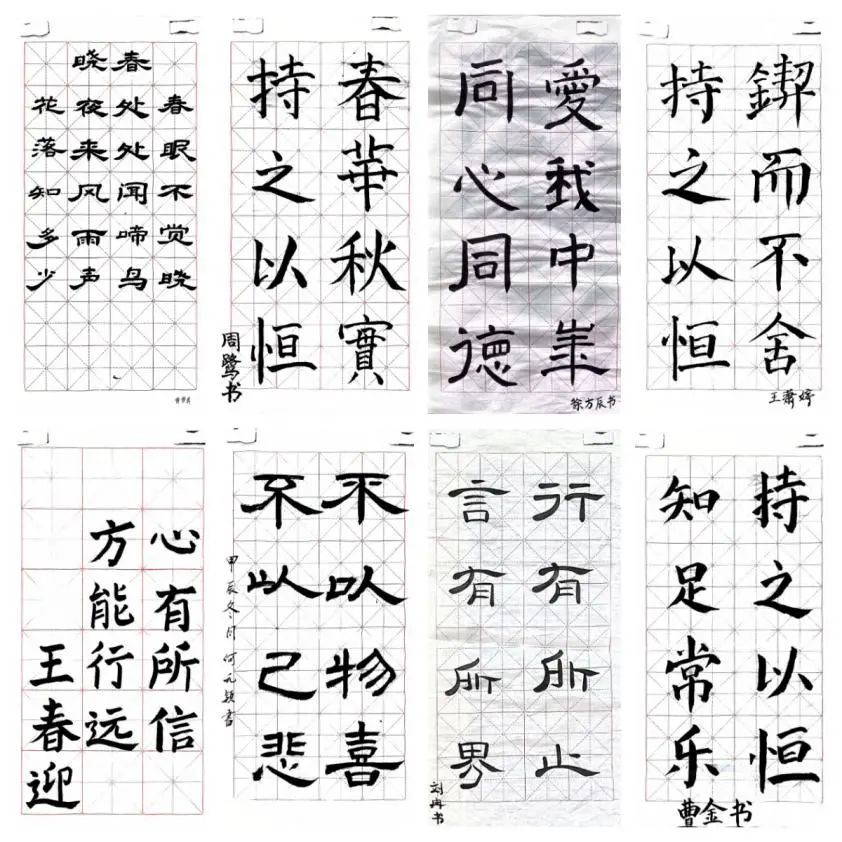 春晓
春眠不觉晓
处处闻啼鸟
夜来风雨声
花落知多少
春華秋實
持之以恒
周鹭书
愛我中華
同心同德
徐方辰书
鍥而不舍
持之以恒
王萧婷
心有所信
方能行远
王春迎
不以物喜
不以己悲
甲辰冬月
行有所止
言有所界
刘冉书
持之以恒
知足常乐
曹金书